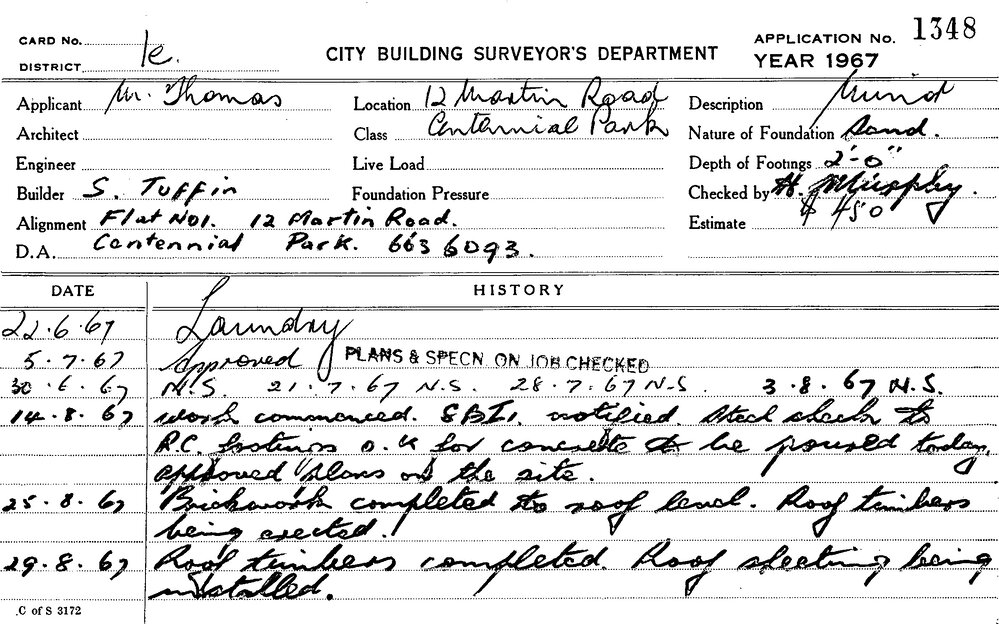 CARD No.
DISTRICT 1e.
CITY BUILDING SURVEYOR'S DEPARTMENT
APPLICATION No. 1348
YEAR 1967
Applicant Mr. Thomas
Location 12 Martin Road
Description
Architect
Class Centennial Park
Nature of Foundation Sand.
Engineer
Live Load
Depth of Footings 2'-0"
Builder S. Tuffin
Foundation Pressure
Checked by H. Murphy.
Alignment Flat No1. 12 Martin Road.
Estimate $ 450
D.A. Centennial Park. 663 6093.
DATE HISTORY
22.6.67 Laundry
5.7.67 Approved PLANS & SPECN. ON JOB CHECKED
30.6.67 N.S. 21.7.67 N.S. 28.7.67 N.S. 3.8.67 N.S.
14.8.67 Work commenced. S.B.I. notified. Steel check to
R.C. footings O.K for concrete to be poured today,
approved plans on the site.
25.8.67 Brickwork completed to roof level. Roof timbers
being erected.
29.8.67 Roof timbers completed. Roof sheeting being
installed.
C of S 3172